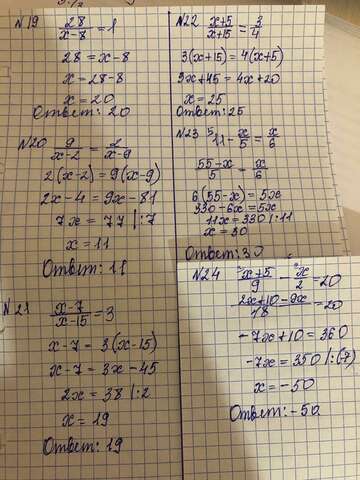 N 19 28/(x-8) = 1
28 = x-8
x = 28-8
x = 20
Ответ: 20
N20 9/(x-2) = 2/(x-9)
2(x-2) = 9(x-9)
2x-4 = 9x-81
7x = 77 |:7
x = 11
Ответ: 11
N 21 (x-7)/(x-15) = 3
x-7 = 3(x-15)
x-7 = 3x-45
2x = 38 |:2
x = 19
Ответ: 19
N22 (x+5)/(x+15) = 3/4
3(x+15) = 4(x+5)
3x+45 = 4x+20
x = 25
Ответ: 25
N23 5 11 - x/5 = x/6
(55-x)/5 = x/6
6(55-x) = 5x
330-6x = 5x
11x = 330 |:11
x = 30
Ответ: 30
N24 (x+5)/9 - x/2 = 20
(2x+10-9x)/18 = 20
-7x+10 = 360
-7x = 350 |:(-7)
x = -50
Ответ: -50